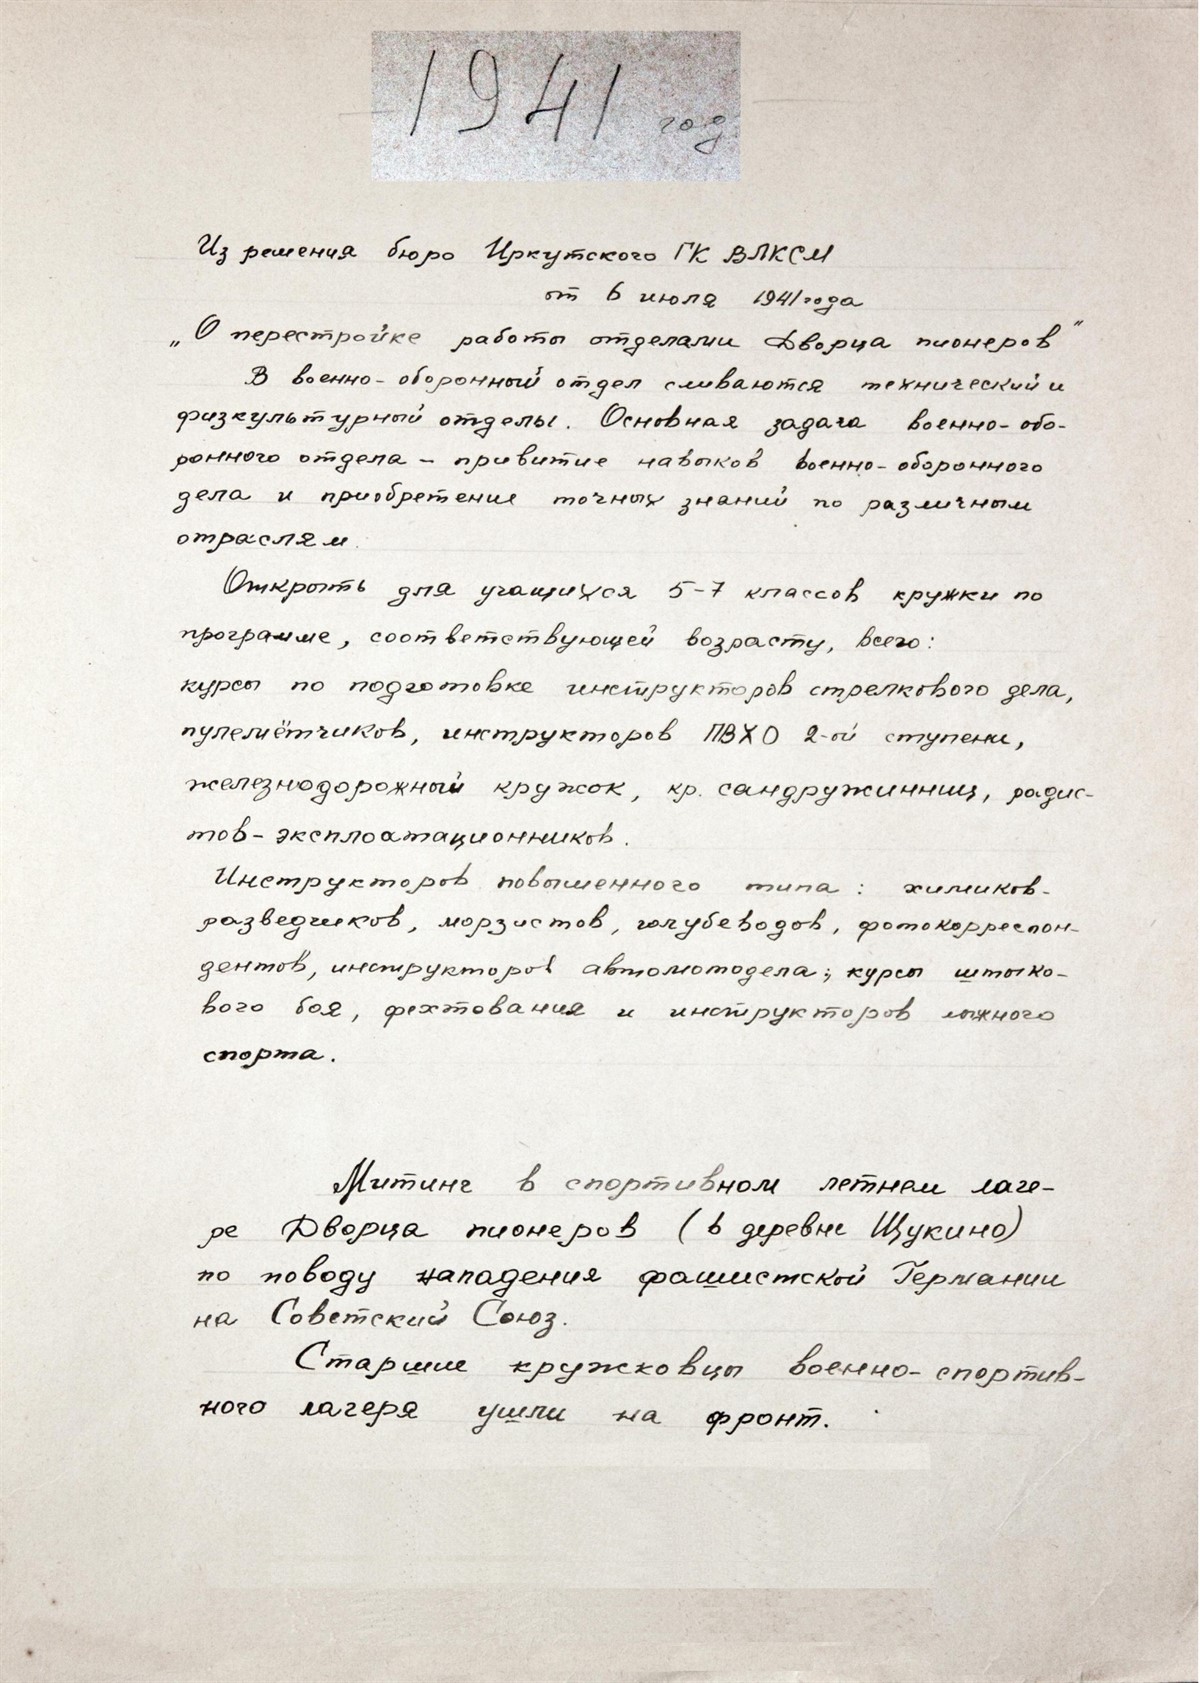 1941 год
Из решения бюро Иркутского ГК ВЛКСМ
от 6 июля 1941 года
„О перестройке работы отделами Дворца пионеров"
В военно-оборонный отдел сливаются технический и
физкультурный отделы. Основная задача военно-обо-
ронного отдела – привитие навыков военно-оборонного
дела и приобретение точных знаний по различным
отраслям.
Открыть для учащихся 5-7 классов кружки по
программе, соответствующей возрасту, всего:
курсы по подготовке инструкторов стрелкового дела,
пулемётчиков, инструкторов ПВХО 2-ой ступени,
железнодорожный кружок, кр. сандружинниц, радис-
тов-эксплоатационников.
Инструкторов повышенного типа: химиков-
разведчиков, морзистов, голубеводов, фотокорреспон-
дентов, инструкторов автомотодела; курсы штыко-
вого боя, фехтования и инструкторов лыжного
спорта.
Митинг в спортивном летнем лаге-
ре Дворца пионеров (в деревне Щукино)
по поводу нападения фашистской Германии
на Советский Союз.
Старшие кружковцы военно-спортив-
ного лагеря ушли на фронт.